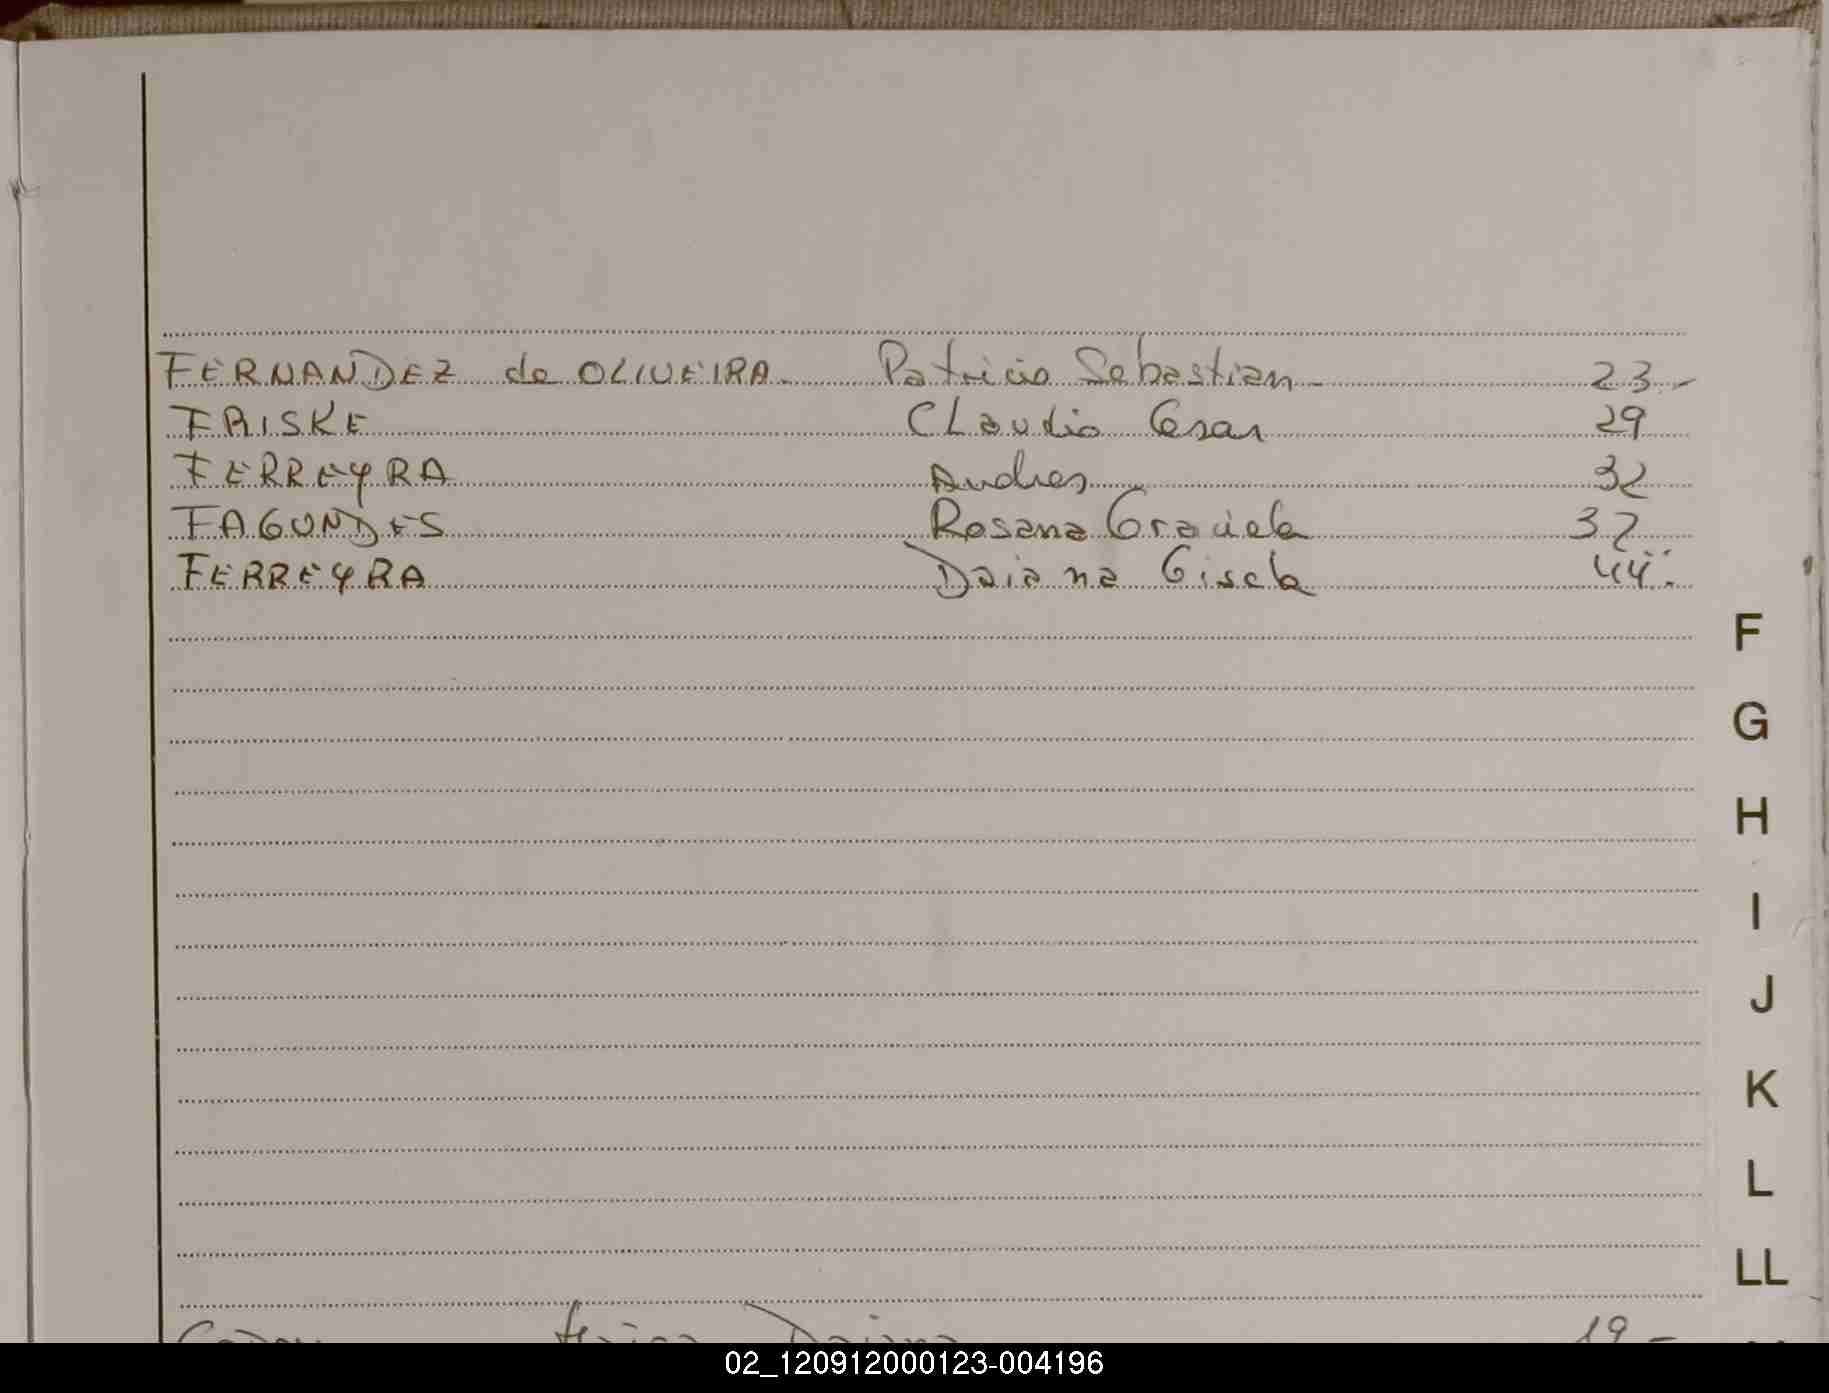 FERNANDEZ de OLIVEIRA. Patricio Sebastian 23.-
FRISKE Claudio Cesar 29
FERREYRA Andres 32
FAGUNDES Rosana Graciela 32
FERREYRA Daiana Gisela 44.
F
G
H
I
J
K
L
LL
Daiana 19-
02_120912000123-004196